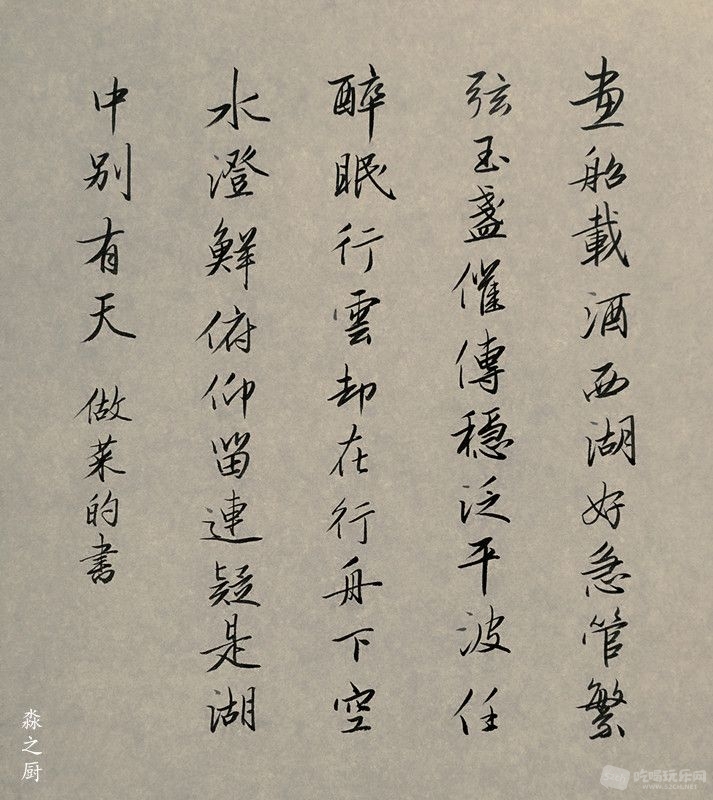 画船載酒西湖好急管繁
弦玉盞催傳穩泛平波任
醉眠行雲却在行舟下空
水澄鮮俯仰留連疑是湖
中别有天
做菜的書
淼之厨
吃喝玩乐网